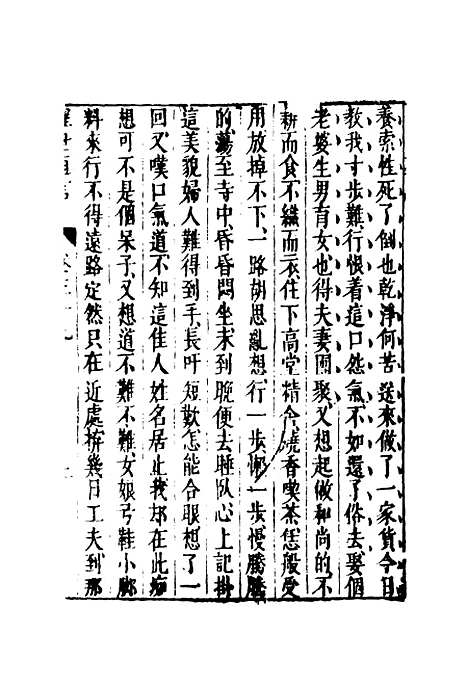 養索性死了倒也乾淨何苦送來做了一家貨今日
教我寸步難行恨着這口怨氣不如還了俗去娶個
老婆生男育女也得夫妻團聚又想起做和尚的不
耕而食不織而衣住下高堂精舍燒香喫茶恁般受
用放掉不下一路胡思亂想行一步懶一步慢騰騰
的蕩至寺中昏昏悶坐未到晚便去睡臥心上記掛
這美貌婦人難得到手長吁短歎怎能合眼想了一
回又嘆口氣道不知這佳人姓名居止我却在此痴
想可不是個呆子又想道不難不難女娘弓鞋小脚
料來行不得遠路定然只在近處拚幾日工夫到那
醒世恒言